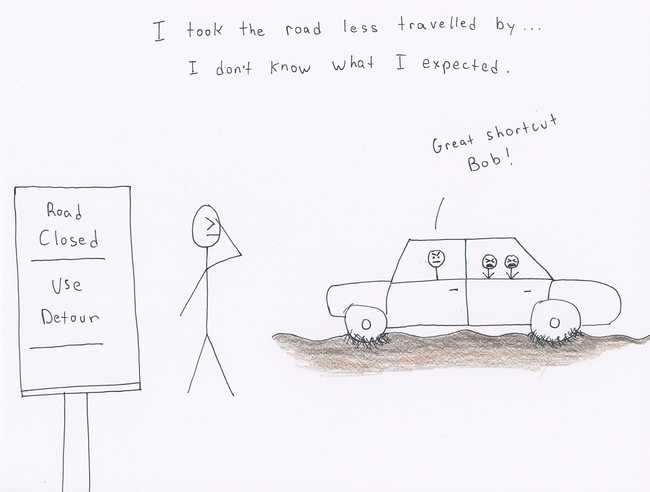 I took the road less travelled by...
I don't know what I expected.
Great shortcut
Bob!
Road
Closed
Use
Detour